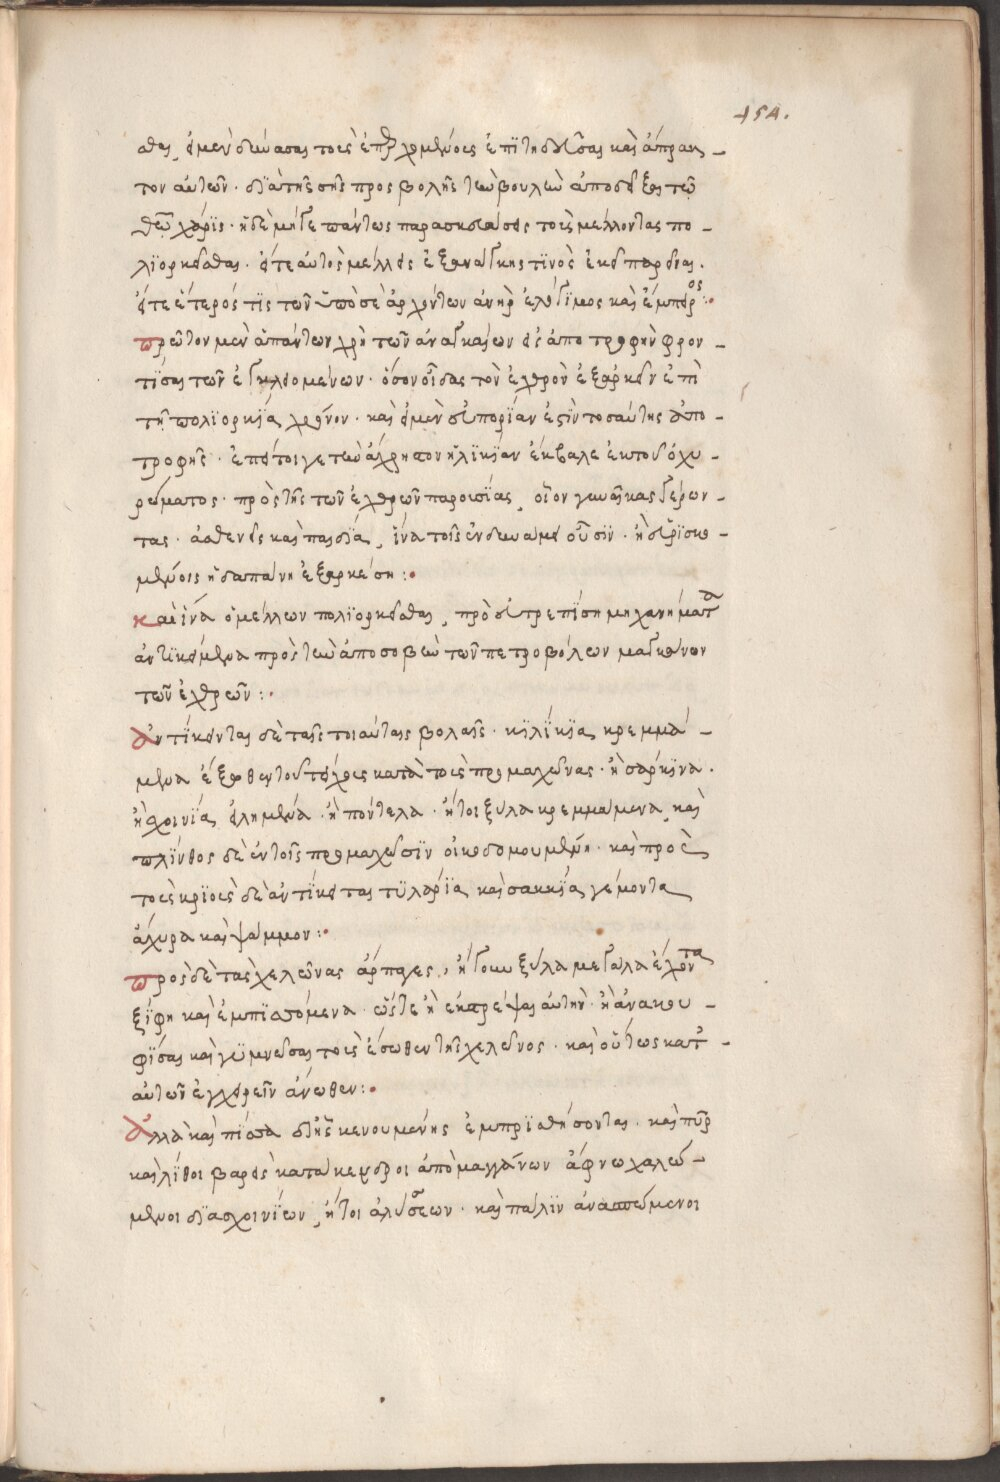 154.
σθαι, εἰ μὲν δυνάσαι τοὺς ἐπερχομένους ἐπιτηδεῦσαι καὶ ἄπρακ-
τον αὐτῶν· διὰ τῆς σῆς προσβολῆς τὴν βουλὴν ἀποδεῖξαι τῷ
θεῷ χάρις· εἰ δὲ μήγε πάντως παρασκευάσεις τοὺς μέλλοντας πο-
λϊορκεῖσθαι. εἴτε αὐτὸς μέλλεις ἐξ ἀνάγκης τϊνὸς ἐκεῖ παρεῖναι.
εἴτε ἕτερός τϊς τῶν ὑπὸ σὲ ἀρχόντων ἀνὴρ ἐλλόγϊμος καὶ ἔμπειρος:·
πρῶτον μὲν ἁπάντων χρὴ τῶν ἀναγκαίων εἰς ἀποτροφὴν φρον-
τίσαι τῶν ἐγκλειομένων· ὅσον οἶδας τὸν ἐχθρὸν ἐξαρκεῖν ἐπὶ
τῇ πολϊορκίᾳ χρόνον· καὶ εἰ μὲν εὐπορίαν ἐστὶν τοσαύτης ἀπο-
τροφῆς· ἐπεὶ τοίγε τὴν ἄχρηστον ἡλϊκίαν ἔκβαλε ἐκ τοῦ ὀχυ-
ρώματος· πρὸ τῆς τῶν ἐχθρῶν παρουσίας, οἷον γυναῖκας γέρον-
τας· ἀσθενεῖς καὶ παιδία, ἵνα τοῖς ἐν δυνάμει οὖσϊν· ἡ εὑρϊσκο-
μένοις ἡ δαπάνη ἐξαρκέσῃ:·
καὶ ἵνα ὁ μέλλων πολϊορκεῖσθαι, προευτρεπίσῃ μηχανήματα
ἀντϊκείμενα πρὸς τὴν ἀποσοβὴν τῶν πετροβόλων μαγκάνων
τῶν ἐχθρῶν:·
ἀντίκεινται δὲ ταῖς τοιαύταις βολαῖς· κϊλίκϊα κρεμμά-
μενα ἔξωθεν τοῦ τείχους κατὰ τοὺς προμαχῶνας· ἢ σάρκϊνα.
ἢ σχοινία εἰλημένα· ἢ πόντελα· ἤτοι ξύλα κρεμμάμενα, καὶ
πλίνθος δὲ ἐν τοῖς προμαχῶσϊν οἰκοδομουμένη· καὶ πρὸς
τοὺς κρϊοὺς δὲ ἀντίκειται τϋλάρϊα καὶ σακκία γέμοντα
ἄχυρα καὶ ψάμμον:·
πρὸς δὲ τὰς χελώνας ἅρπαγες, ἤγουν ξύλα μεγάλα ἔχοντα
ξίφη καὶ ἐμπϊασόμενα· ὥστε ἢ ἐκστρέψαι αὐτήν· ἢ ἀνακου-
φίσαι καὶ γϋμνῶσαι τοὺς ἔσωθεν τῆς χελώνης· καὶ οὕτως κατ-
αὐτῶν ἐγχωρεῖν ἄνωθεν:·
ἀλλὰ καὶ πίσσα διῆς κενουμένης ἐμπρϊσθήσονται· καὶ πῦρ
καὶ λίθοι βαρεῖς κατωκέφαροι ἀπὸ μαγγάνων ἄφνω χαλώ-
μενοι διὰ σχοινίων, ἤτοι ἁλύσεων· καὶ πάλϊν ἀνασπώμενοι